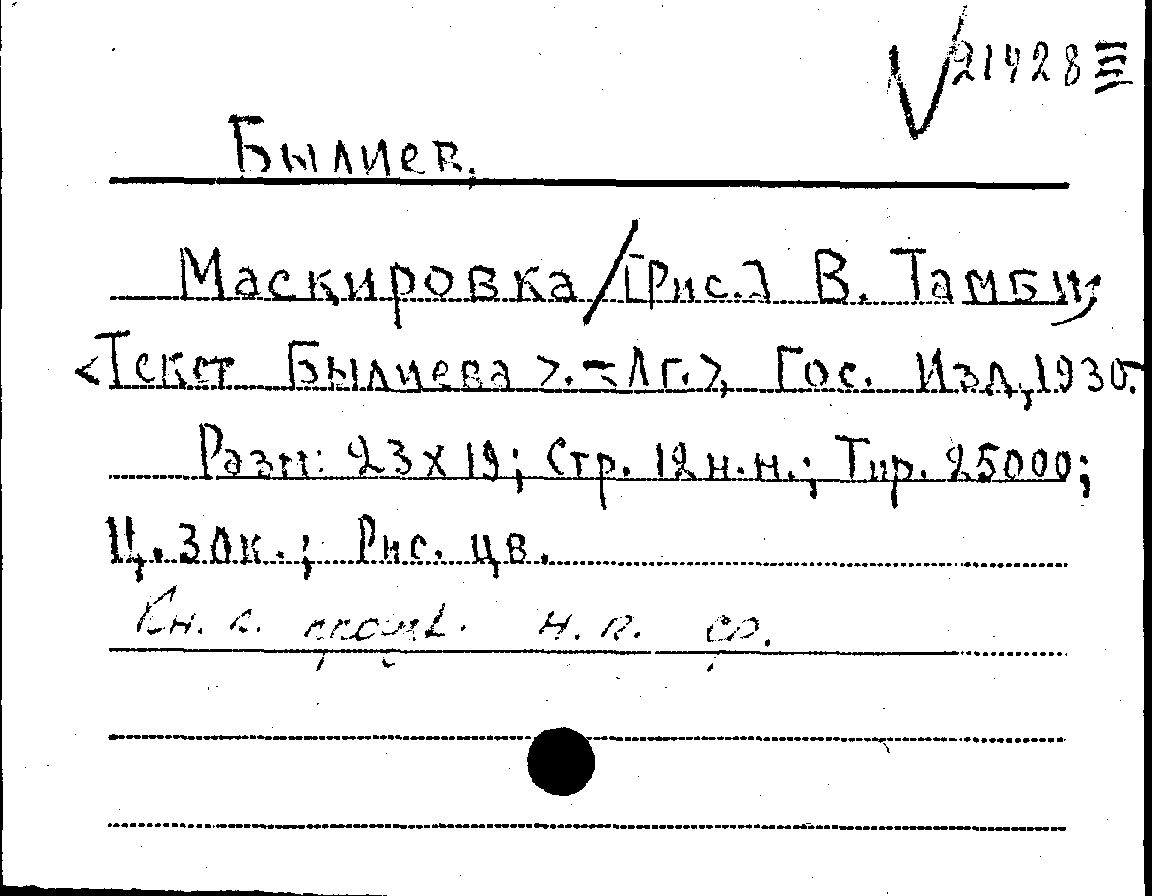 21428
Былиев.
Маскировка / [Рис.] В. Тамби,
<Текст Былиева>. - <Лг.>, Гос. Изд, 1930.
Разм: 23 х 19; Стр. 12 н.н.; Тир. 25000;
Ц. 30 к.; Рис. цв.
Кн. н. п. ср.